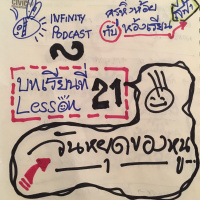 INFINITY
PODCAST
ครูหิ่งห้อย
กับ ห้องเรียน
บทเรียนที่
Lesson 21
วันหยุดของหนู